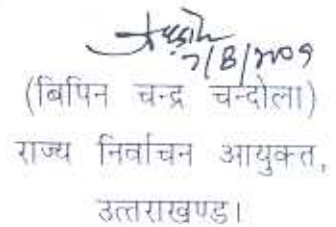 7/8/2009
(बिपिन चन्द्र चन्दोला)
राज्य निर्वाचन आयुक्त,
उत्तराखण्ड।